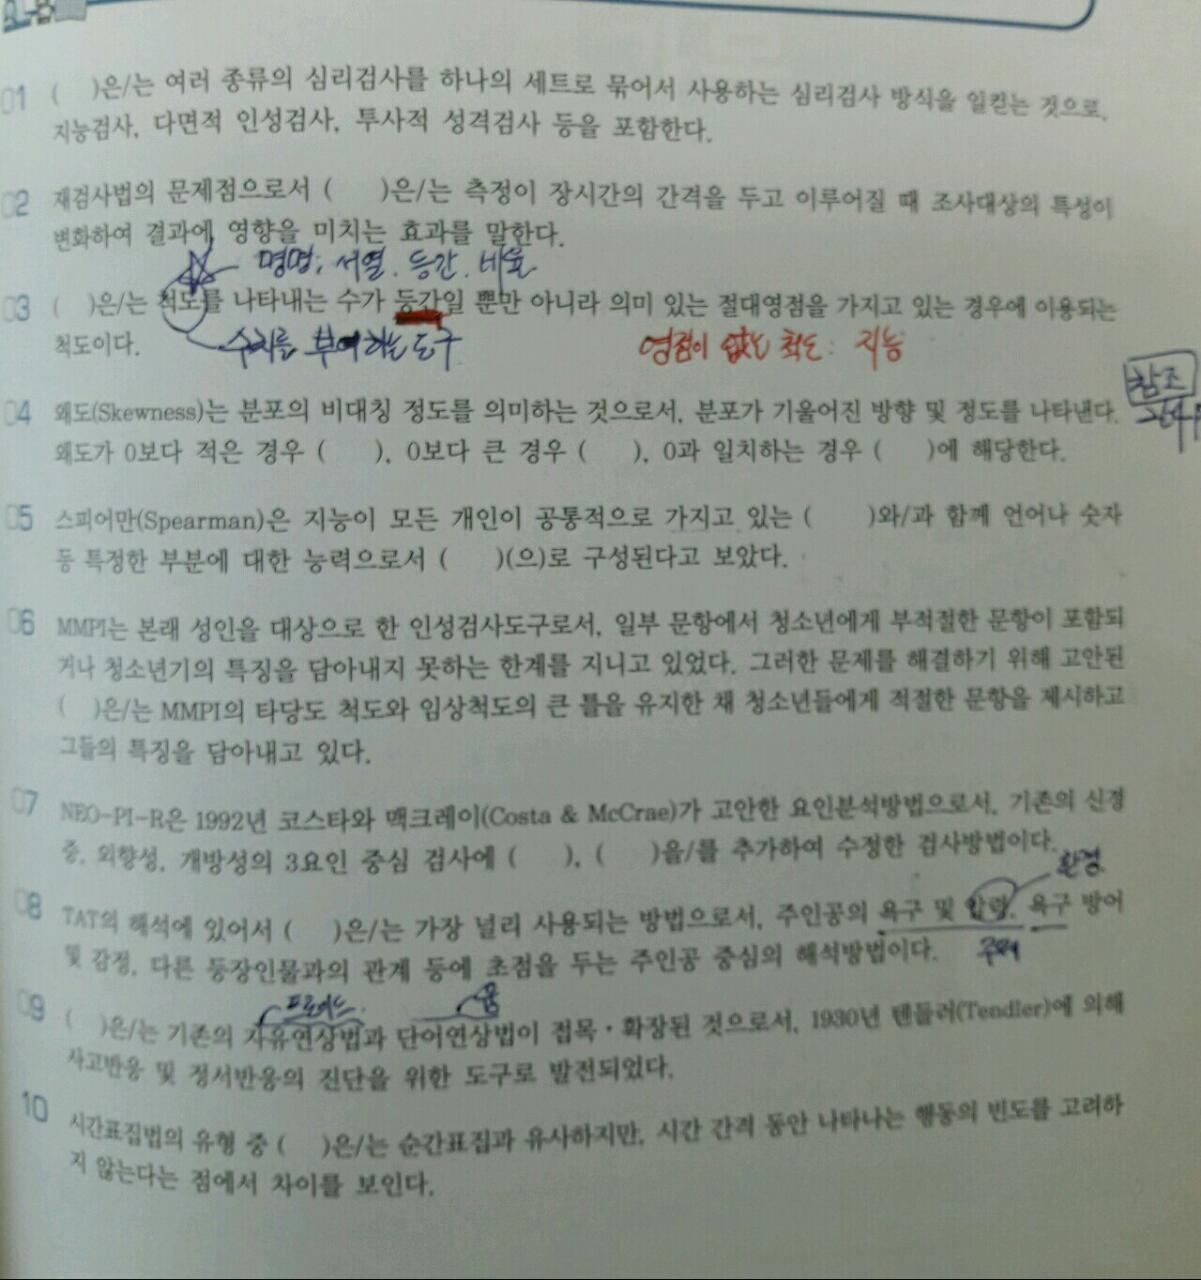 01 (    )은/는 여러 종류의 심리검사를 하나의 세트로 묶어서 사용하는 심리검사 방식을 일컫는 것으로,
지능검사, 다면적 인성검사, 투사적 성격검사 등을 포함한다.
02 재검사법의 문제점으로서 (    )은/는 측정이 장시간의 간격을 두고 이루어질 때 조사대상의 특성이
변화하여 결과에 영향을 미치는 효과를 말한다.
명명, 서열, 등간, 비율
03 (    )은/는 척도를 나타내는 수가 등간일 뿐만 아니라 의미 있는 절대영점을 가지고 있는 경우에 이용되는
척도이다.
수치를 부여하는 도구
영점이 없는 척도: 지능
참조
04 왜도(Skewness)는 분포의 비대칭 정도를 의미하는 것으로서, 분포가 기울어진 방향 및 정도를 나타낸다.
왜도가 0보다 적은 경우 (    ), 0보다 큰 경우 (    ), 0과 일치하는 경우 (    )에 해당한다.
05 스피어만(Spearman)은 지능이 모든 개인이 공통적으로 가지고 있는 (    )와/과 함께 언어나 숫자
등 특정한 부분에 대한 능력으로서 (    )(으)로 구성된다고 보았다.
06 MMPI는 본래 성인을 대상으로 한 인성검사도구로서, 일부 문항에서 청소년에게 부적절한 문항이 포함되
거나 청소년기의 특징을 담아내지 못하는 한계를 지니고 있었다. 그러한 문제를 해결하기 위해 고안된
(    )은/는 MMPI의 타당도 척도와 임상척도의 큰 틀을 유지한 채 청소년들에게 적절한 문항을 제시하고
그들의 특징을 담아내고 있다.
07 NEO-PI-R은 1992년 코스타와 맥크레이(Costa & McCrae)가 고안한 요인분석방법으로서, 기존의 신경
증, 외향성, 개방성의 3요인 중심 검사에 (    ), (    )을/를 추가하여 수정한 검사방법이다.
환경
08 TAT의 해석에 있어서 (    )은/는 가장 널리 사용되는 방법으로서, 주인공의 욕구 및 압력, 욕구 방어
및 감정, 다른 등장인물과의 관계 등에 초점을 두는 주인공 중심의 해석방법이다.
프로이드
융
09 (    )은/는 기존의 자유연상법과 단어연상법이 접목·확장된 것으로서, 1930년 텐들러(Tendler)에 의해
사고반응 및 정서반응의 진단을 위한 도구로 발전되었다.
10 시간표집법의 유형 중 (    )은/는 순간표집과 유사하지만, 시간 간격 동안 나타나는 행동의 빈도를 고려하
지 않는다는 점에서 차이를 보인다.